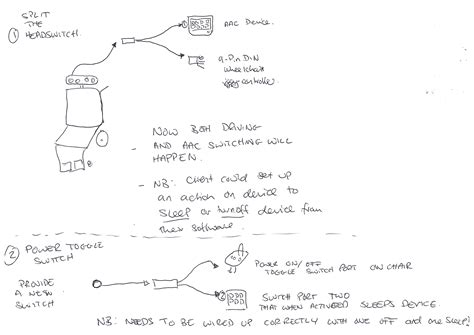 SPLIT
THE
① HEADSWITCH
① AAC DEVICE.
9-PIN DIN
Wheelchair
controller
- NOW BOTH DRIVING
AND AAC SWITCHING WILL
HAPPEN.
- NB: could set up
an action on device to
SLEEP or turnoff device from
their software.
② POWER TOGGLE
SWITCH
PROVIDE
A NEW
SWITCH
POWER ON/OFF
TOGGLE SWITCH PORT ON CHAIR
② SWITCH PORT TWO
THAT WHEN ACTIVATED SLEEPS DEVICE.
NB: NEEDS TO BE WIRED UP CORRECTLY WITH ONE OFF and one SLEEP